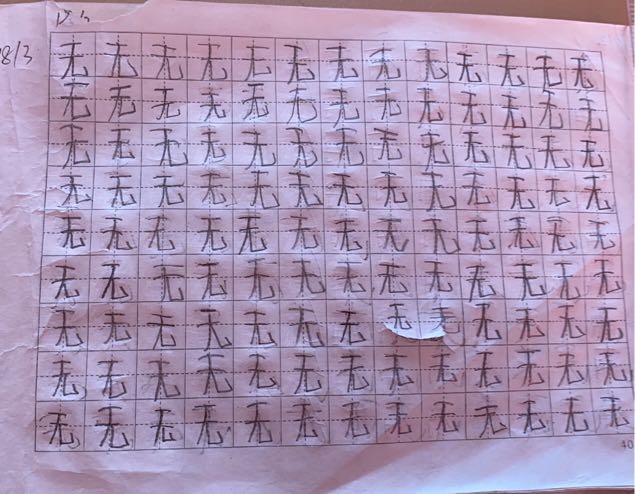 8/3
无无无无无无无无无无无无无
无无无无无无无无无无无无无
无无无无无无无无无无无无无
无无无无无无无无无无无无无
无无无无无无无无无无无无无
无无无无无无无无无无无无无
无无无无无无无无无无无无无
无无无无无无无无无无无无无
无无无无无无无无无无无无无
40